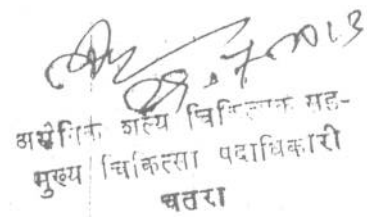 7.2013
असैनिक शल्य चिकित्सक सह-
मुख्य चिकित्सा पदाधिकारी
चतरा